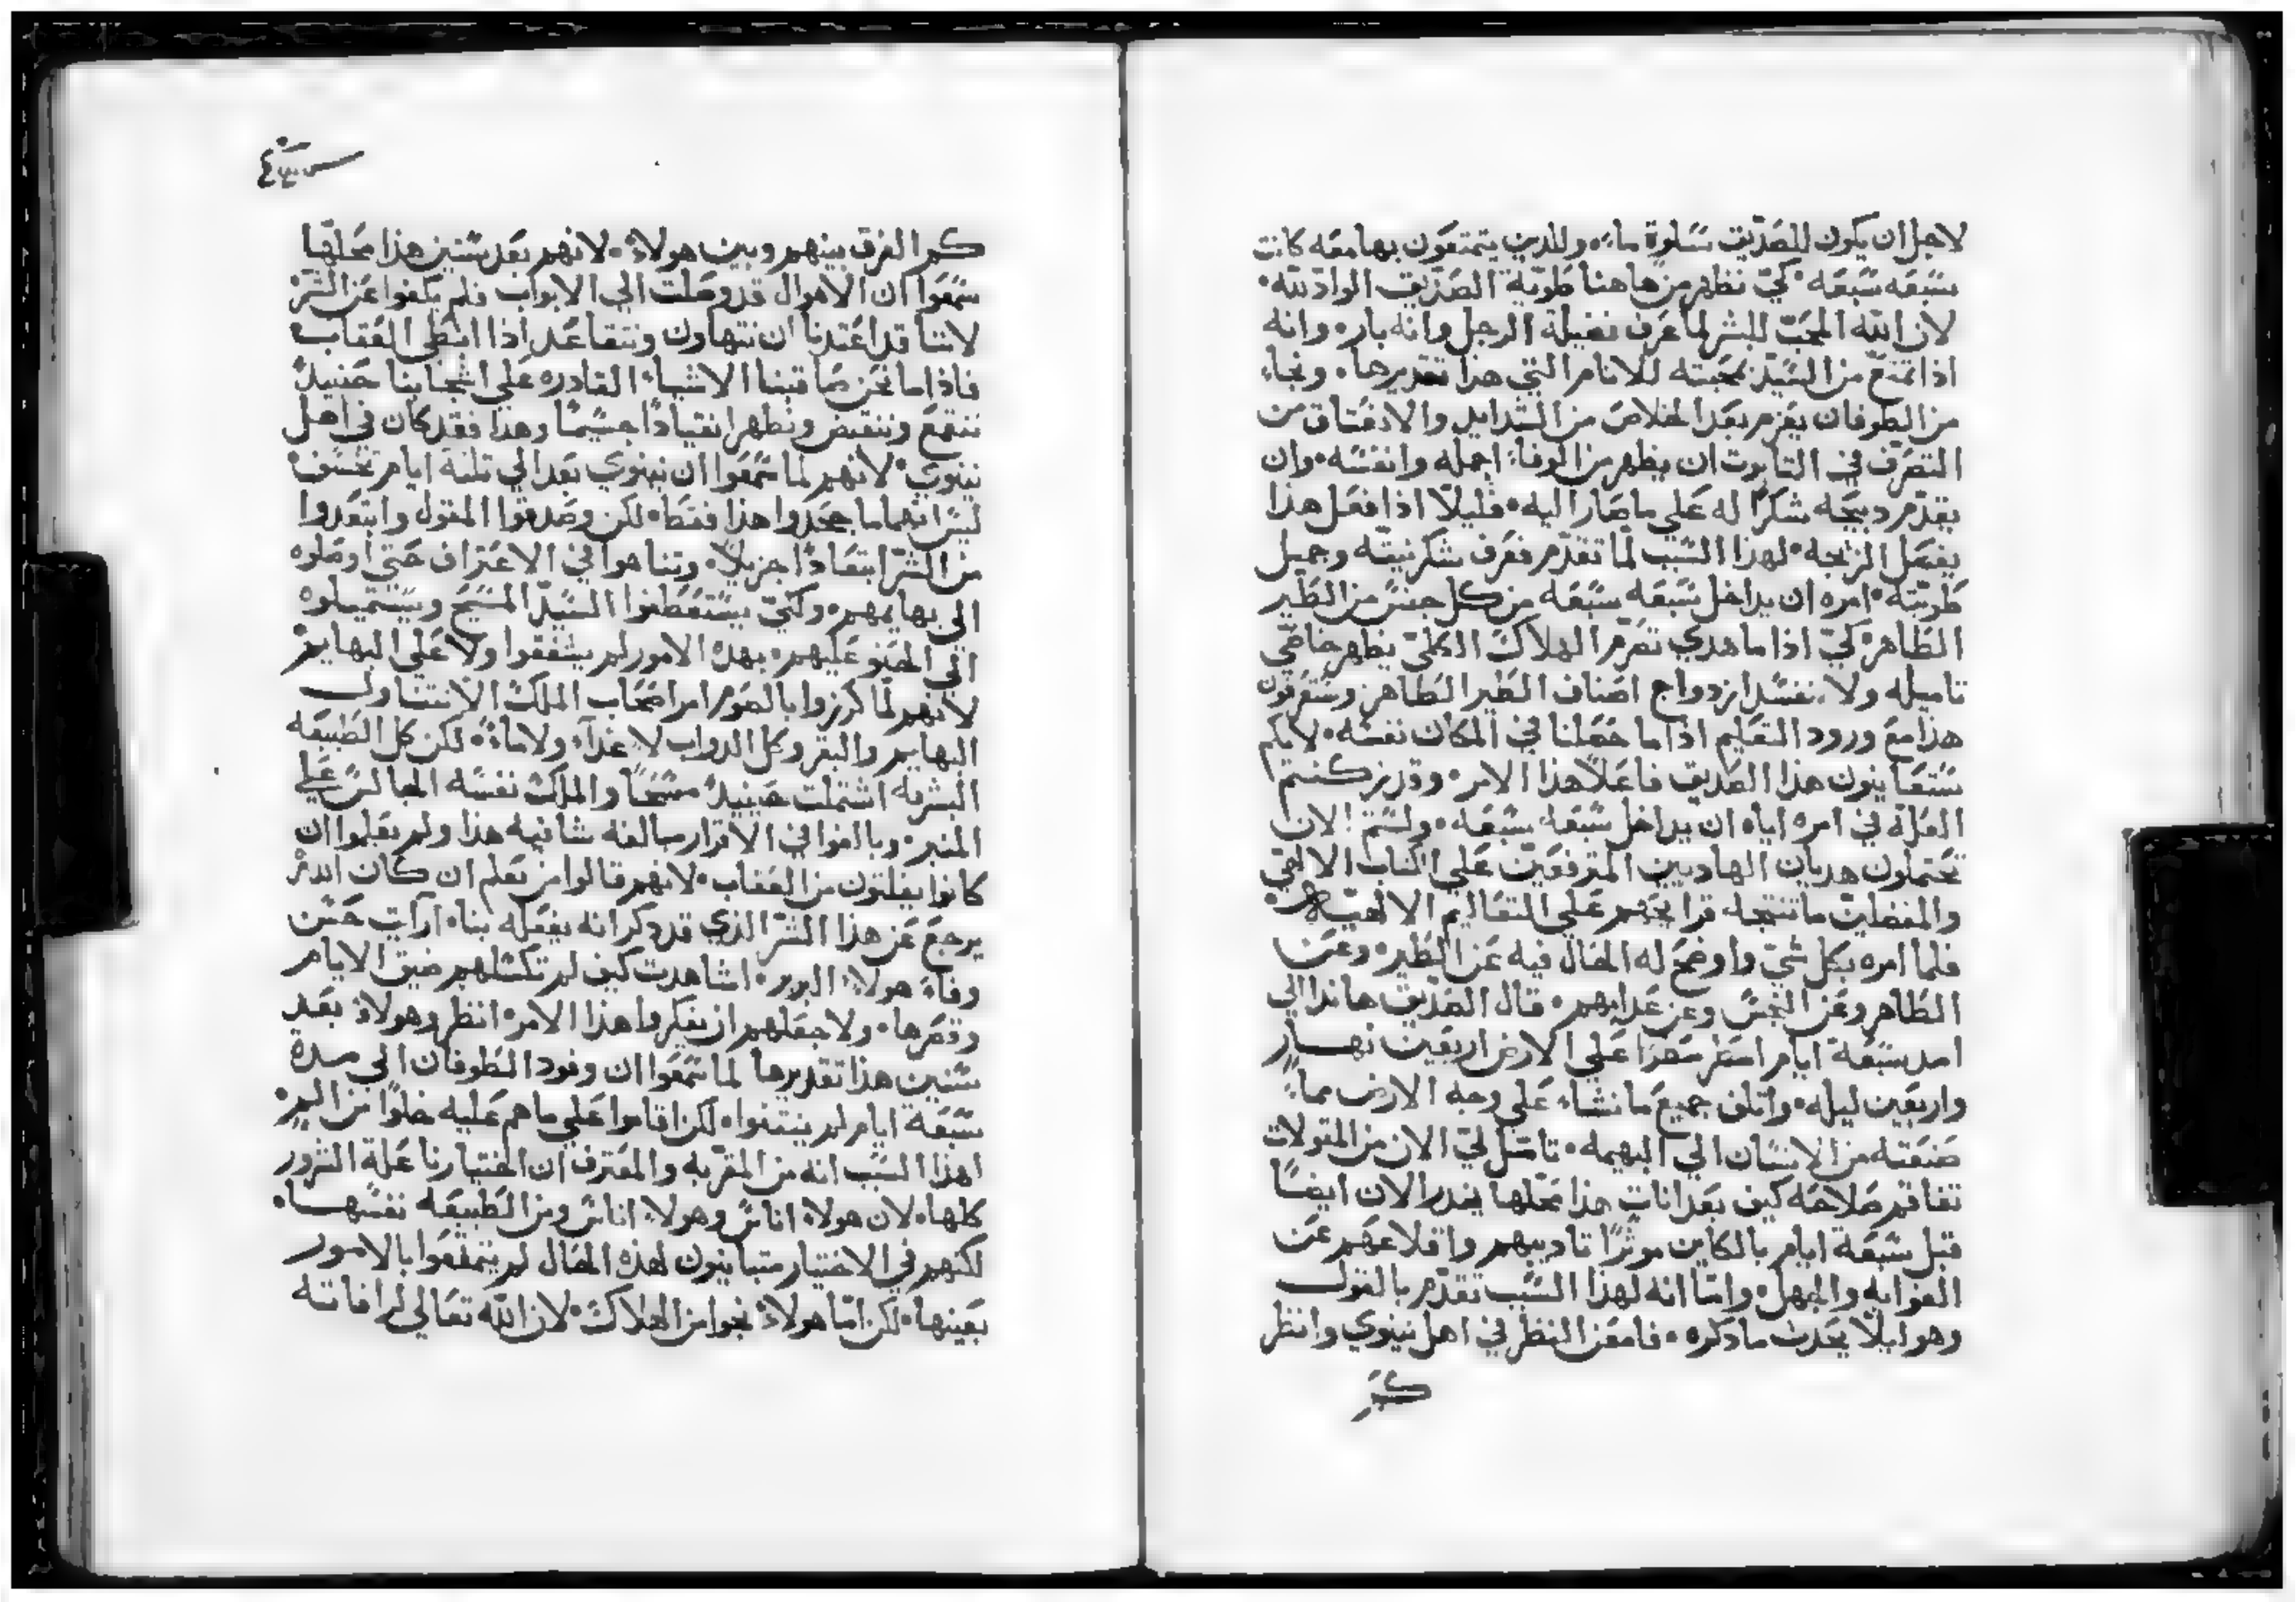 لاجل ان يكون للصديق سلوة ماء • وللذين يتمتعون بها معه كانت
سبعه سبعه • كيّ تظهر من هاهنا طويّة الصدّيق الوادّ لله •
لان الله المحبّ للبشر لما عرف فضيلة الرجل وانه بار • وانه
اذا تمتع من السيّد بمحبته للانام التي هذا تقديرها • ونجاء
من الطوفان يعزم بعد الخلاص من الشدايد والافتاق من
التصرّف في التابوت ان يظهر من الوفاء اجمله وانفسه • وان
يقدّم دبيحه شكرًا له على ما صار اليه • فليلّا اذا فعل هذا
يفصل الزيجه • لهذا السبب لما تقدّم فعرف شكر نيته وجميل
طويّته • امره ان يداخل سبعه سبعه من كل جنس من الطير
الطاهر • كيّ اذا ما هدي تصرّم الهلاك الكليّ يظهر خاصّي
تاميله ولا يفسد ازدواج اصناف الطير الطاهر وستعرفون
هذا مع ورود التعليم اذا ما حصلنا في المكان نفسه • لانكم
ستعاينون هذا الصديق فاعلاً هذا الامر • وقد زكنتم
العلة في امره اياه ان يداخل سبعه سبعه • ولستم الان
تحتملون هديان الهاديين المترفعين على الكتاب الالهي
والمفضلين ما تنتجه قرايحهم على التعاليم الالهيّه •
فلما امره بكل شيّ واوضح له الحال فيه عن الطير • وعن
الطاهر وعن النجس وعن غدايهم • قال الصدّيق هاندا الي
امد سبعة ايام امطر مطرًا على الارض اربعين نهار
واربعين ليله • واتلف جميع ما نشاء على وجه الارض مماءً
صنعته من الانسان الي البهيمه • تامّل ليّ الان من المقولات
تفاقم صلاحه كيف بعد انات هذا محلها ينذر الان ايضًا
قبل سبعة ايام بالكاين موثرًا تاديبهم واقلاعهم عن
الغوايه والجهل • وامّا انه لهذا السبب تقدّم بالقول
وهو ليلّا يحدث ما ذكره • فامعن النظر في اهل نينوي وانظر
كم
كم الفرق بينهم وبين هولاء • لانهم بعد سنين هذا محلها
سمعوا ان الاهوال قد وصلت الي الابواب فلم يكفوا عن الشر •
لاننا قد اعتدنا ان نتهاون ونتقاعد اذا ابطى العقاب
فاذا ما نحن صاقبنا الاشياء القادره على اشجابنا حنيدً
ننقمع وننقبض ونظهر انقيادًا جسيمًا وهذا فقد كان في اهل
نينوي • لانهم لما سمعوا ان نينوي بعد الي تلتة ايام تخسف
ليس انهما ما جحدوا هذا فقط • لكن وصدقوا القول وابتعدوا
من الشر ابتعادًا جزيلاً • وتناهوا في الاعتراف حتي اوصلوه
الي بهايمهم • وكيّ يستعطفوا السيّد المسيح ويستميلوه
الي الحنو عليهم • بهده الامور لم يشفقوا ولا على البهايم
لانهم لمّا كرزوا بالصوم امر اصحاب الملك الا تتناول
البهايم والبقر وكل الدواب لا غدآء ولا ماءً • لكن كل الطبيعه
البشريه اشتملت حينيدً مسحًا والملك نفسه الجالس على
المنبر • وبالغوا في الاقرار مبالغه شانيه هذا ولم يعلموا ان
كانوا يفلتون من العقاب • لانهم قالوا من يعلم ان كان الله
يرجع عن هذا الشر الذي قد دكر انه يفعله بنا • ارآيت حسن
وفاء هولاء البرر • اشاهدت كيف لم تكسلهم ضيق الايام
وقصرها • ولا جعلهم ان يفكروا هذا الامر • انظر وهولاء بعد
سنين هذا تقديرها لما سمعوا ان وفود الطوفان الي مدة
سبعة ايام لم ينتفوا • لكن اقاموا على ما هم عليه خلوًا من البر •
لهذا السبب انه من المقر به والمعترف ان اختيارنا علة الشرور
كلها • لان هولاء اناسٌ وهولاء اناسٌ ومن الطبيعه نفسها •
لكنهم في الاختيار متباينون لهذه الحال لم يتمتعوا بالامور
بعينها • لكن امّا هولاء نجوا من الهلاك • لان الله تعالي لرافاته